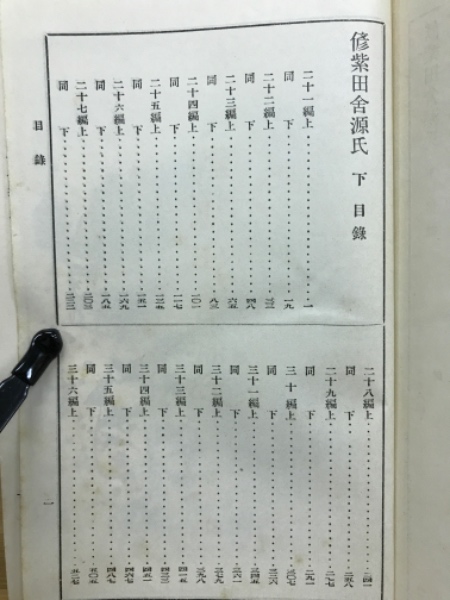 偐紫田舍源氏 下 目錄
二十一編上 一
同 下 一九
二十二編上 三三
同 下 四八
二十三編上 六五
同 下 八三
二十四編上 一〇一
同 下 一一七
二十五編上 一三五
同 下 一五一
二十六編上 一六九
同 下 一八五
二十七編上 二〇三
同 下
目錄
二十八編上 二四一
同 下 二五八
二十九編上 二七七
同 下 二九一
三十編上 三〇七
同 下 三二六
三十一編上 三四五
同 下 三六一
三十二編上 三七九
同 下 三九八
三十三編上 四一五
同 下 四三三
三十四編上 四五一
同 下 四六七
三十五編上 四八七
同 下 五〇五
三十六編上 五二七
一